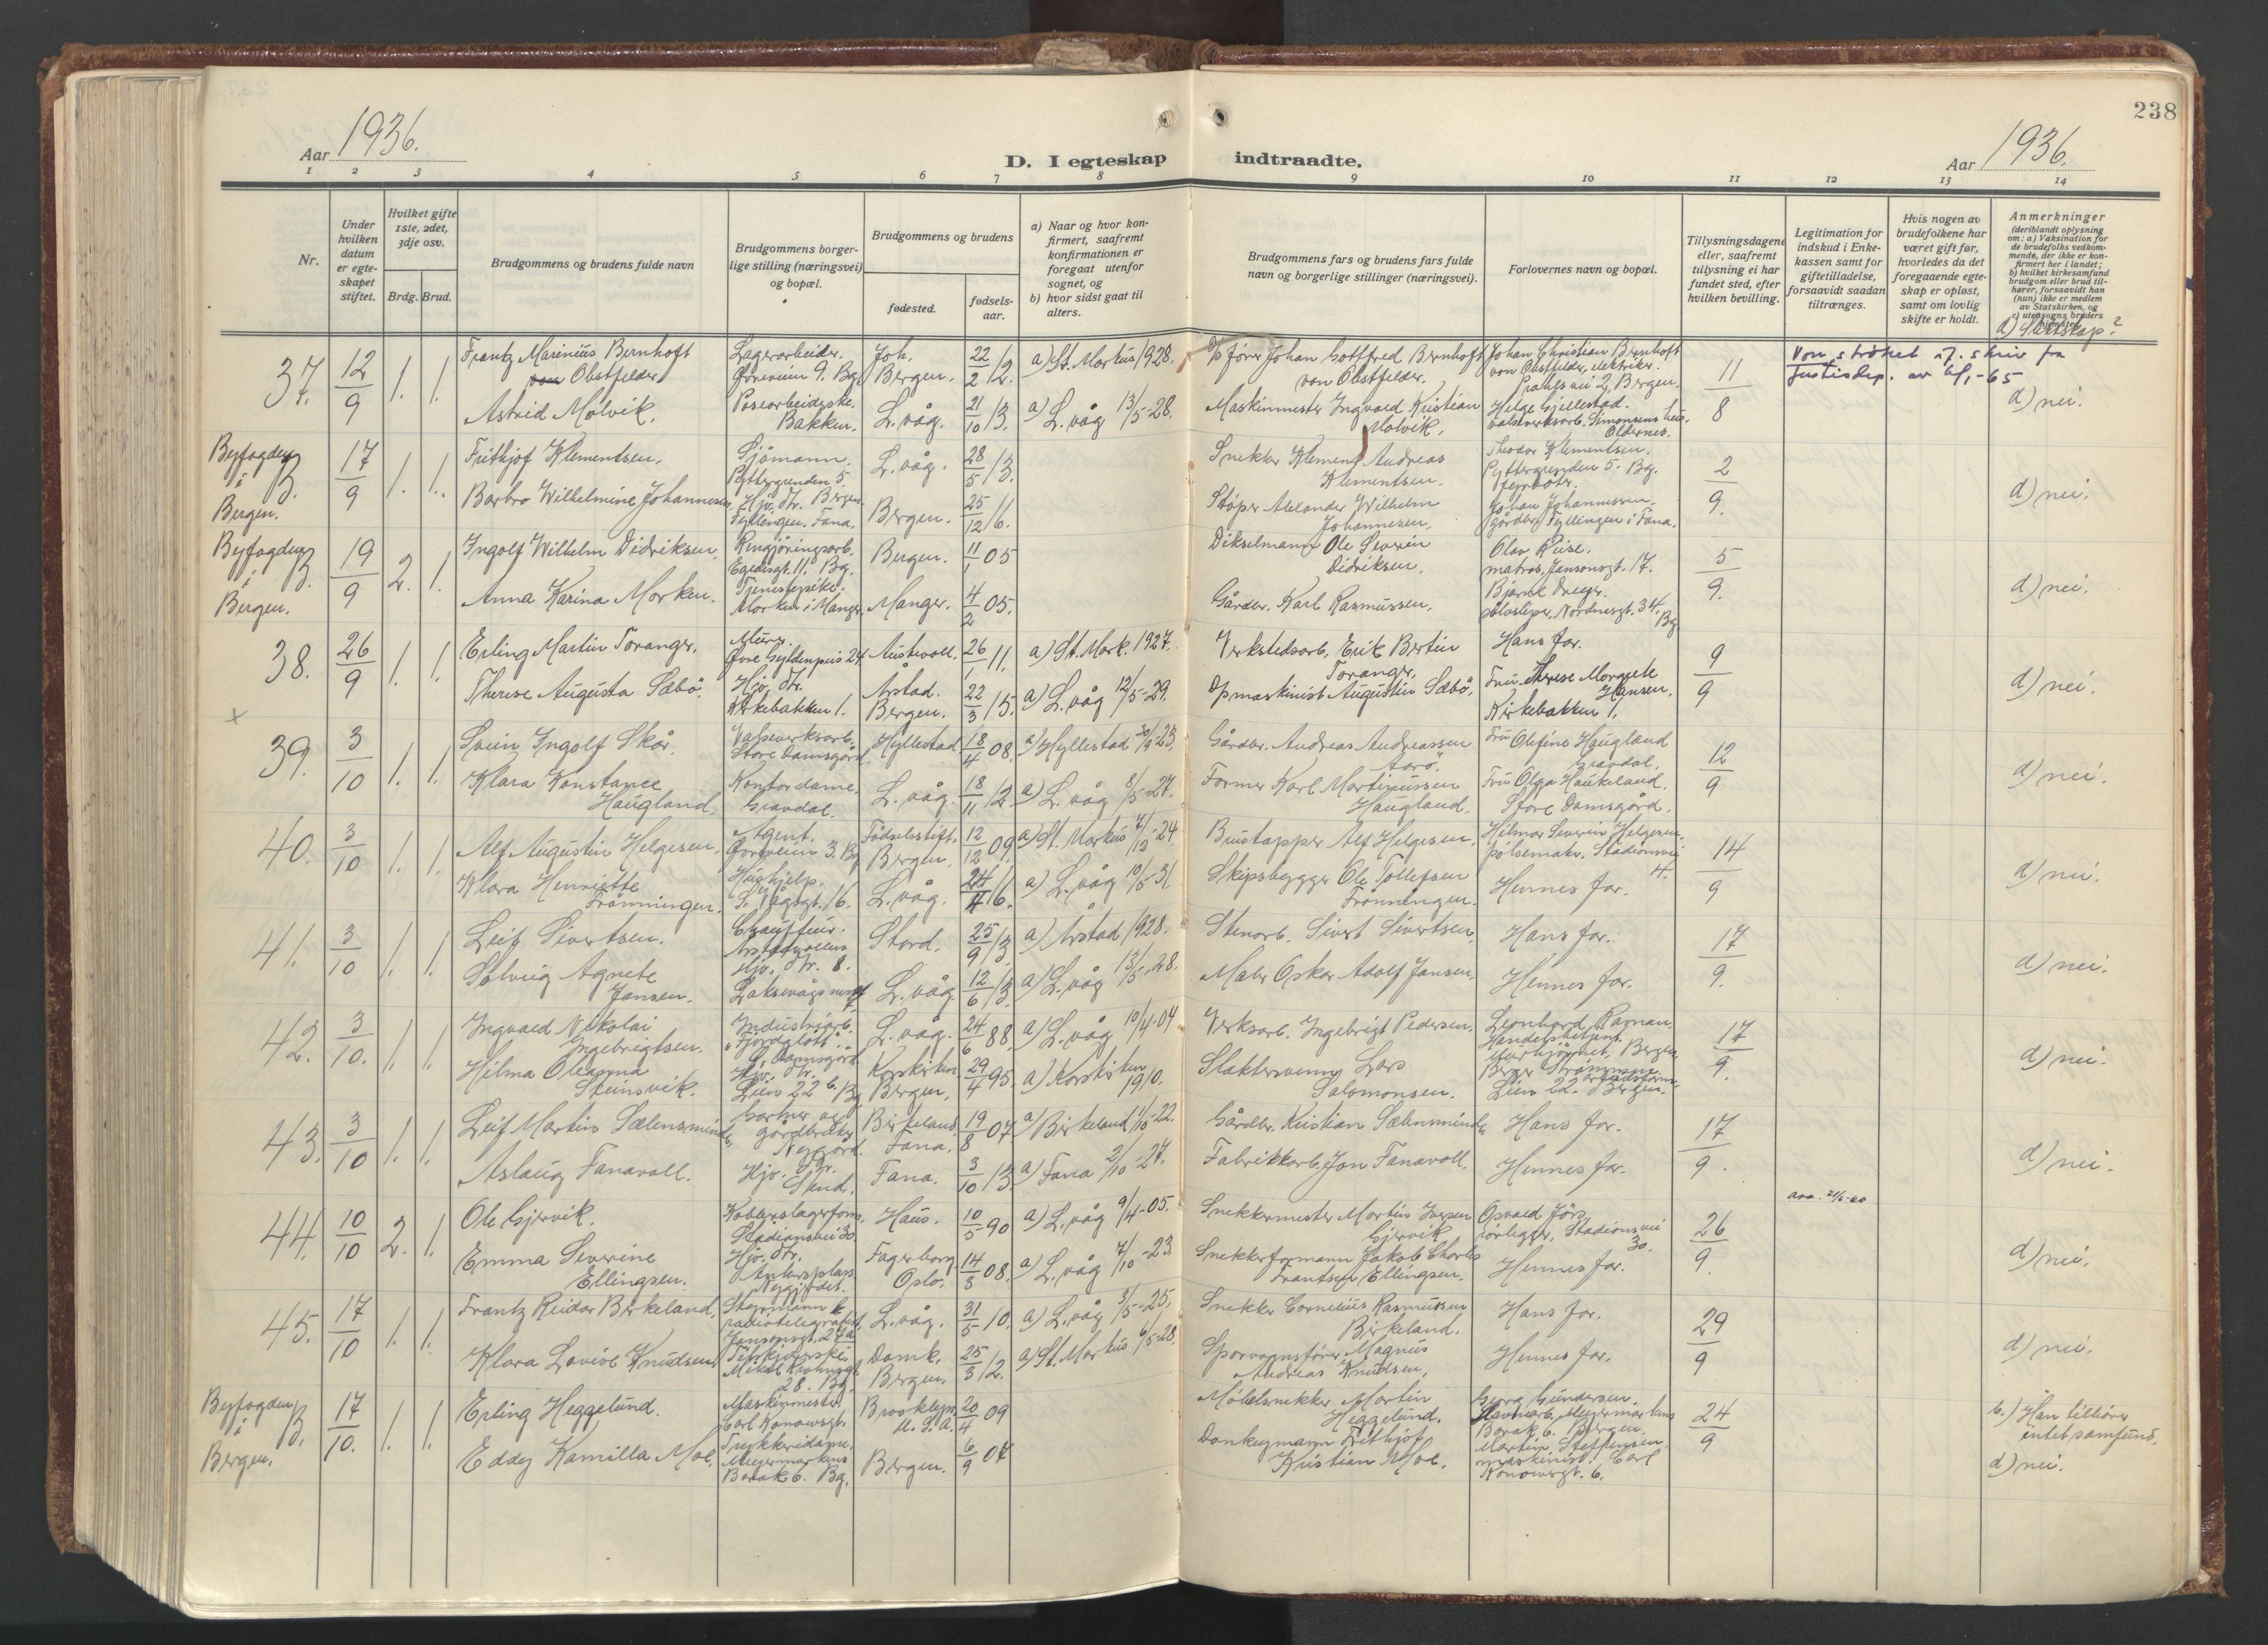 238
Aar 1936.
D. I egteskap indtraadte.
Aar 1936.
1 2 3 4 5 6 7 8 9 10 11 12 13 14
Nr.
Under hvilken datum er egteskapet stiftet.
Hvilket gifte 1ste, 2det, 3dje osv.
Brdg. Brud.
Brudgommens og brudens fulde navn
Brudgommens borgerlige stilling (næringsvei) og bopæl.
Brudgommens og brudens
fødested.
fødselsaar.
a) Naar og hvor konfirmert, saafremt konfirmationen er foregaat utenfor sognet, og
b) hvor sidst gaat til alters.
Brudgommens fars og brudens fars fulde navn og borgerlige stillinger (næringsvei).
Forlovernes navn og bopæl.
Tillysningsdagene eller, saafremt tillysning ei har fundet sted, efter hvilken bevilling.
Legitimation for indskud i Enkekassen samt for giftetilladelse, forsaavidt saadan tiltrænges.
Hvis nogen av brudefolkene har været gift før, hvorledes da det foregaaende egteskap er opløst, samt om lovlig skifte er holdt.
Anmerkninger
(deriblandt oplysning om: a) Vaksination for de brudefolks vedkommende, der ikke er konfirmert her i landet;
b) hvilket kirkesamfund brudgom eller brud tilhører, forsaavidt han (hun) ikke er medlem av Statskirken, og
d) Slektskap?
37. 12/9 1. 1. Frantz Marinius Bernhoft von Obstfelder. Lagerarbeider. Øvreveien 9. Bg. Joh. Bergen. 22/2 12. a) St. Markus 1928. Johan Gottfred Bernhoft von Obstfelder. Johan Christian Bernhoft von Obstfelder, elektriker. Bergen. 11/8 Von strøket if. skriv fra Justisdep. av 6/1-65
Astrid Molvik. Posearbeiderske. Bakken. L.våg. 21/10 13. a) L.våg 13/5-28. Maskinmester Ingvald Kristian Molvik. Helge Gjellestad. valseverksarb. Simonsens hus. Oldernes. d) nei.
Byfogden i Bergen. B. 17/9 1. 1. Frithjof Klementsen. Sjömann, Pyttergrenden 5. L.våg. 28/5 13. Snekker Klement Andreas Klementsen. Theodor Klementsen. Pyttergrenden 5. Bg. fyrbøter. 2/9.
Barbro Wilhelmine Johannesen. Hjv. dtr. Bergen. Fyllingen. Fana. Bergen. 25/12 16. Støper Alexander Wilhelm Johannesen. Johan Johannessen. gårdbr. Fyllingen i Fana. d) nei.
Byfogden i Bergen. B. 19/9 2. 1. Ingolf Wilhelm Didriksen. Rengjöringsarb. Egedesgt. 11. Bg. Bergen. 11/1 05 Dikselmann Ole Severin Didriksen. Olav Riise. matros, Jansonsgt. 17. 5/9.
Anna Karina Morken. Tjenestepike. Morken i Manger. Manger. 4/2 05. Gårdbr. Karl Rasmussen. Bjarne Dreyer. Nordnesgt. 34. Bg. d) nei.
38. 26/9 1. 1. Erling Martin Toranger. Murer. Øvre Gyldenpris 24. Austevoll. 26/1 11. a) St. Mark. 1927. Verkstedsarb. Erik Bertin Toranger. Hans far. 9/9
Therese Augusta Sæbö. Hjv. dtr. Kirkebakken 1. Årstad. Bergen. 22/3 15. a) L.våg 12/5-29. Opmaskinist Augustin Sæbö. Fru Therese Margrete Hansen. Kirkebakken 1. d) nei.
x
39. 3/10 1. 1. Svein Ingolf Skår. Valseverksarb. Store Damsgård. Hyllestad 18/4 08. a) Hyllestad 30/9-23. Gårdbr. Andreas Andreassen Aarö. Fru Olefine Haugland Gravdal. 12/9
Klara Konstance Haugland. Kontordame. Gravdal. L.våg. 18/11 12. a) L.våg 8/5-27. Former Karl Martinussen Haugland. Fru Olga Haukeland. Store Damsgård. d) nei.
40. 3/10 1. 1. Alf Augustin Helgesen. Agent. Øvreveien 3. Bg. Fødselsstift. Bergen. 12/12 09. a) St. Markus 7/12-24. Buntapper Alf Helgesen. Hilmar Severin Helgesen. pølsemaker. Stadionsvei 4. 14/9
Klara Henriette Frönningen. Hushjelp. 16. L.våg. 24/4 16. a) L.våg 10/5-31. Skipsbygger Ole Tollefsen Frönningen. Hennes far. d) nei.
41. 3/10 1. 1. Leif Sivertsen. Chauffeur. Årstadvollen Stord. 25/9 13. a) Årstad 1928. Stenarb. Sivert Sivertsen. Hans far. 17/9.
Solveig Agnete Jansen. Hjv. dtr. 8. Laksevågsneset L.våg. 12/6 13. a) L.våg 13/5-28. Maler Oskar Adolf Jansen. Hennes far. d) nei.
42. 3/10. 1. 1. Ingvald Nikolai Ingebrigtsen. Industriarb. "Fjordgløtt". S. Damsgård. L.våg. 24/6 88. a) L.våg 10/4-04 Verksarb. Ingebrigt Pedersen. Leonhard Raman. Handelsbetjent. Bergen. 17/9.
Hilma Oleanna Steinsvik. Hjv. dtr. Lien 22 b. Bg. Korskirken Bergen. 29/4 95. a) Korskirken 1910. Slaktersvenn Lars Salomonsen. Berger Strømsnes. Lien 22. Bergen. d) nei.
43. 3/10 1. 1. Leif Martin Sælensminde. Gartner og gårdbruker Nygård. Birkeland Fana. 19/8 07. a) Birkeland 1/10-22. Gårdbr. Kristian Sælensminde. Hans far. 17/9.
Aslaug Fanavoll. Hjv. dtr. Sand. Fana. 3/10 13. a) Fana 2/10-27. Fabrikkarb. Jon Fanavoll. Hennes far. d) nei.
44. 10/10 2. 1. Ole Gjervik. Kobberslagerform. Stadionsvei 30. Haus. 10/5 90 a) L.våg 9/4-05. Snekkermester Martin Iversen Gjervik. Osvald Jörs, rörlegger. Stadionsvei 30. 26/9.
Emma Severine Ellingsen. Hjv. dtr. Fagerborg Oslo. 14/3 08. a) L.våg 7/10-23. Snekkerformann Jakob Charles Frantsen Ellingsen. Hennes far. d) nei.
45. 17/10 1. 1. Frantz Reidar Birkeland. Styrmann & radiotelegrafist, Jansonsgt. 27a L.våg. 31/5 10. a) L.våg 3/5-25. Snekker Cornelius Rasmussen Birkeland. Hans far. 29/9
Klara Lovise Knudsen. Tilskjærerske. Mikal Krohnsgt. 28. Bg. Domk. Bergen. 25/3 12. a) St. Markus 6/5-28. Sporvognsfører Magnus Andreas Knudsen. Hennes far. d) nei.
Byfogden i Bergen. B. 17/10. 1. 1. Erling Heggelund. Maskinmester. Carl Konowsgt. Brooklyn U.S.A. 20/4 09 Møbelsnekker Martin Heggelund. Georg Gundersen. Havnearb. Meyermarkens Barak 6. Bergen. 24/9 b.) Han tilhører intet samfund.
Eddy Kamilla Moe. Meyermarkens Barak 6. Bg. Bergen. 6/9 07 Donkeymann Frithjof Kristian Moe. Martin Steffensen. maskinist. Carl Konowsgt. 6. d) nei.